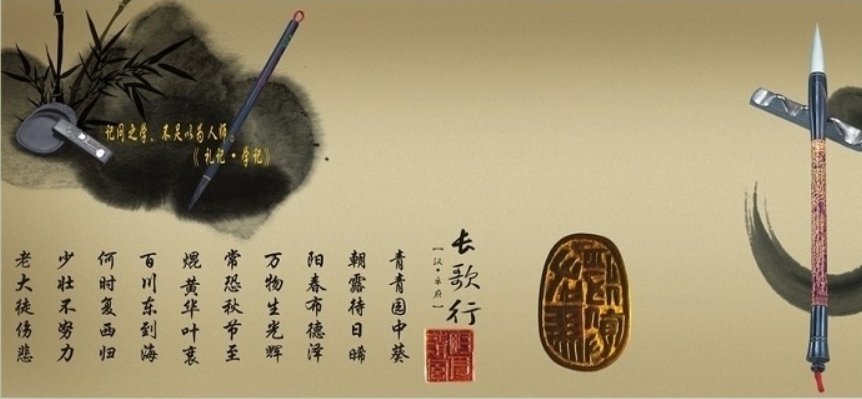 记问之学，不足以为人师。
《礼记·学记》
长歌行
【汉·乐府】
青青园中葵
朝露待日晞
阳春布德泽
万物生光辉
常恐秋节至
焜黄华叶衰
百川东到海
何时复西归
少壮不努力
老大徒伤悲